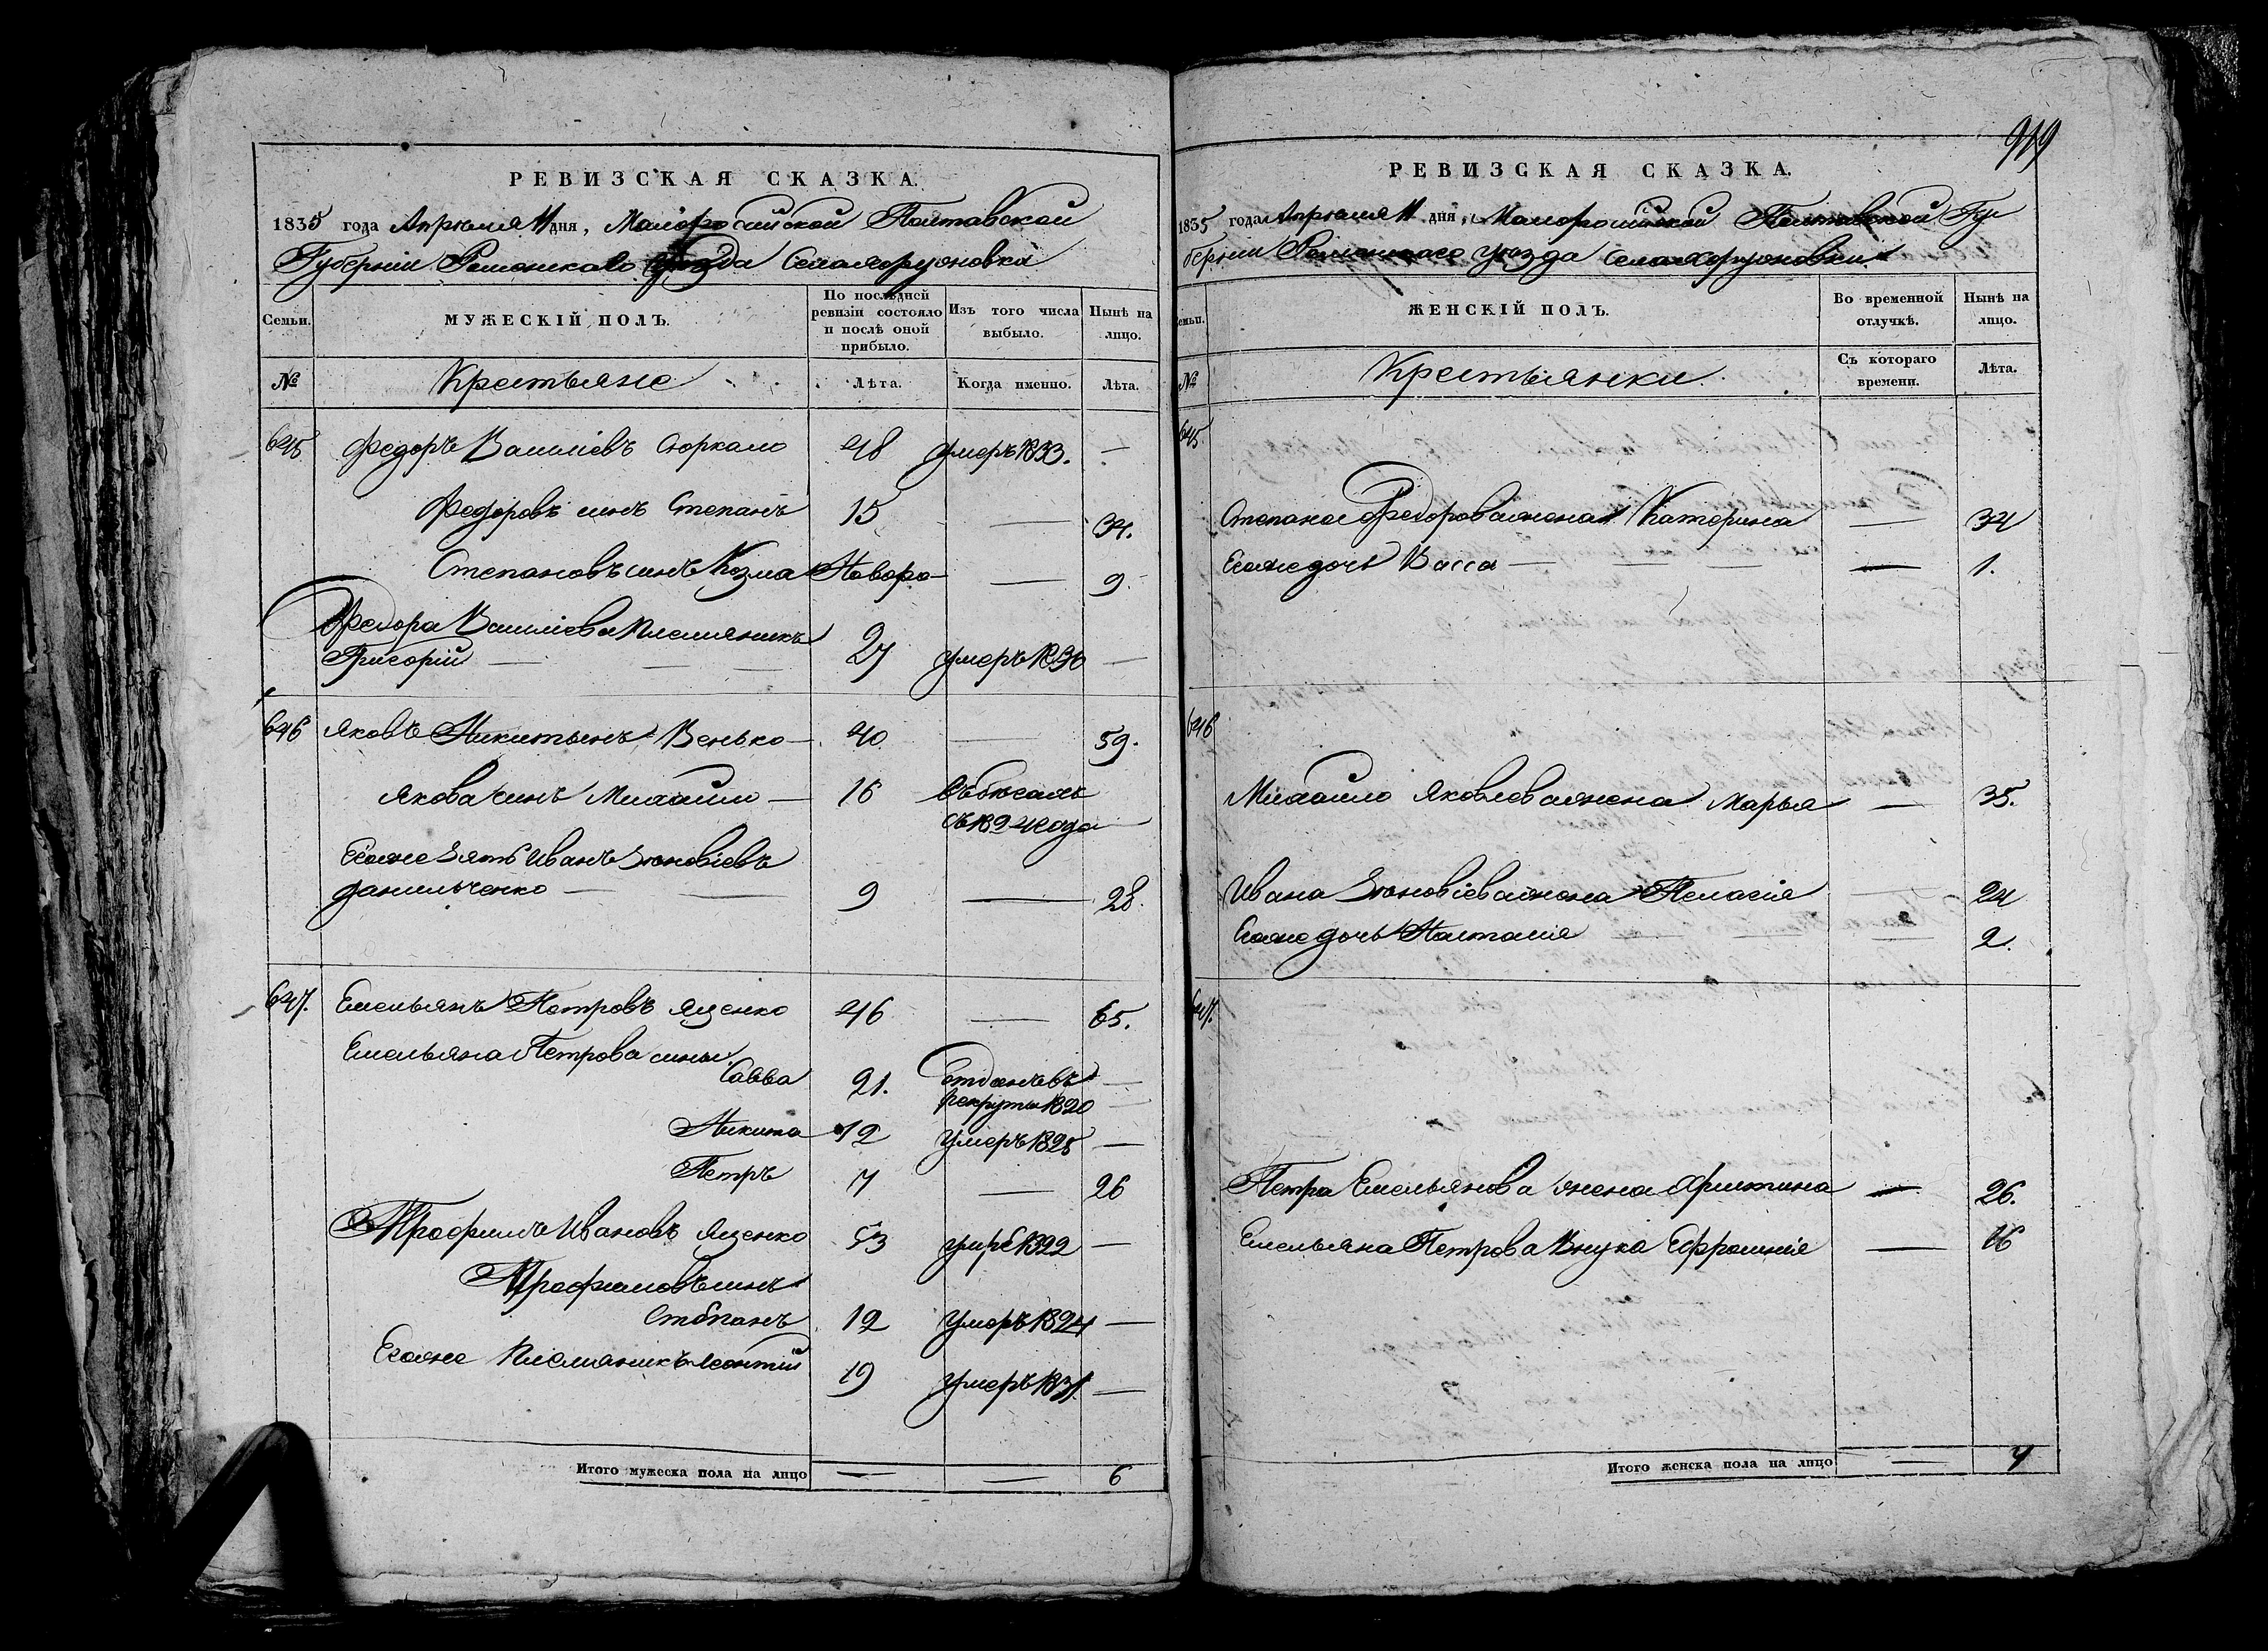 РЕВИЗСКАЯ СКАЗКА.
1835 года Апреля 11 дня, Малоросийской Полтавской
Губернии Роменскаго уезда Села Харционовки
Семьи.
МУЖЕСКІЙ ПОЛЪ.
По послѣдней ревизіи состояло и послѣ оной прибыло.
Изъ того числа выбыло.
Нынѣ на лицо.
№
Крестьяне
Лѣта.
Когда именно.
Лѣта.
645 Федоръ Василіевъ Сюркало 48 умеръ 1833. —
Федоровъ синъ Степанъ 15 — 34.
Степановъ синъ Козма Новоро — 9.
Федора Василіева племяникъ
Григорий — 27 умеръ 1830 —
646 Яковъ Никитынъ Венько — 40 — 59.
Якова синъ Михаило — 16 въ бѣгахъ
съ 1824 года
Егоже зять Иванъ Зѣновіевъ
данильченко — 9 — 28.
647. Емельянъ Петровъ Яценко 46 — 65.
Емельяна Петрова сины
Савва 21. отданъ въ —
рекруты 1820 —
Никита 12 умеръ 1825 —
Петръ 7 — 26
Трофимъ Ивановъ Яценко 53 умре 1822 —
Трофимовъ синъ
Стѣпанъ 12 умеръ 1824 —
Егоже племяникъ Леонтий 19 умеръ 1831 —
Итого мужеска пола на лицо — — 6
919
РЕВИЗСКАЯ СКАЗКА.
1835 года Апреля 11 дня, Малоросийской Полтавской Гу
берніи Роменскаго уезда Села Харционовки
Семьи.
ЖЕНСКІЙ ПОЛЪ.
Во временной отлучкѣ.
Нынѣ на лицо.
№
Крестьянки.
Съ котораго времени.
Лѣта.
645.
Степана Федорова жена Катерина — 34
Егоже дочь Васса — — 1.
646
Михаило Яковлева жена Марья — 35.
Ивана Зѣновіева жена Пелагія — 24
Егоже дочь Настасия — 2.
647.
Петра Емельянова жена Христина — 26.
Емельяна Петрова Внука Ефросинія — 16
Итого женска пола на лицо — 7